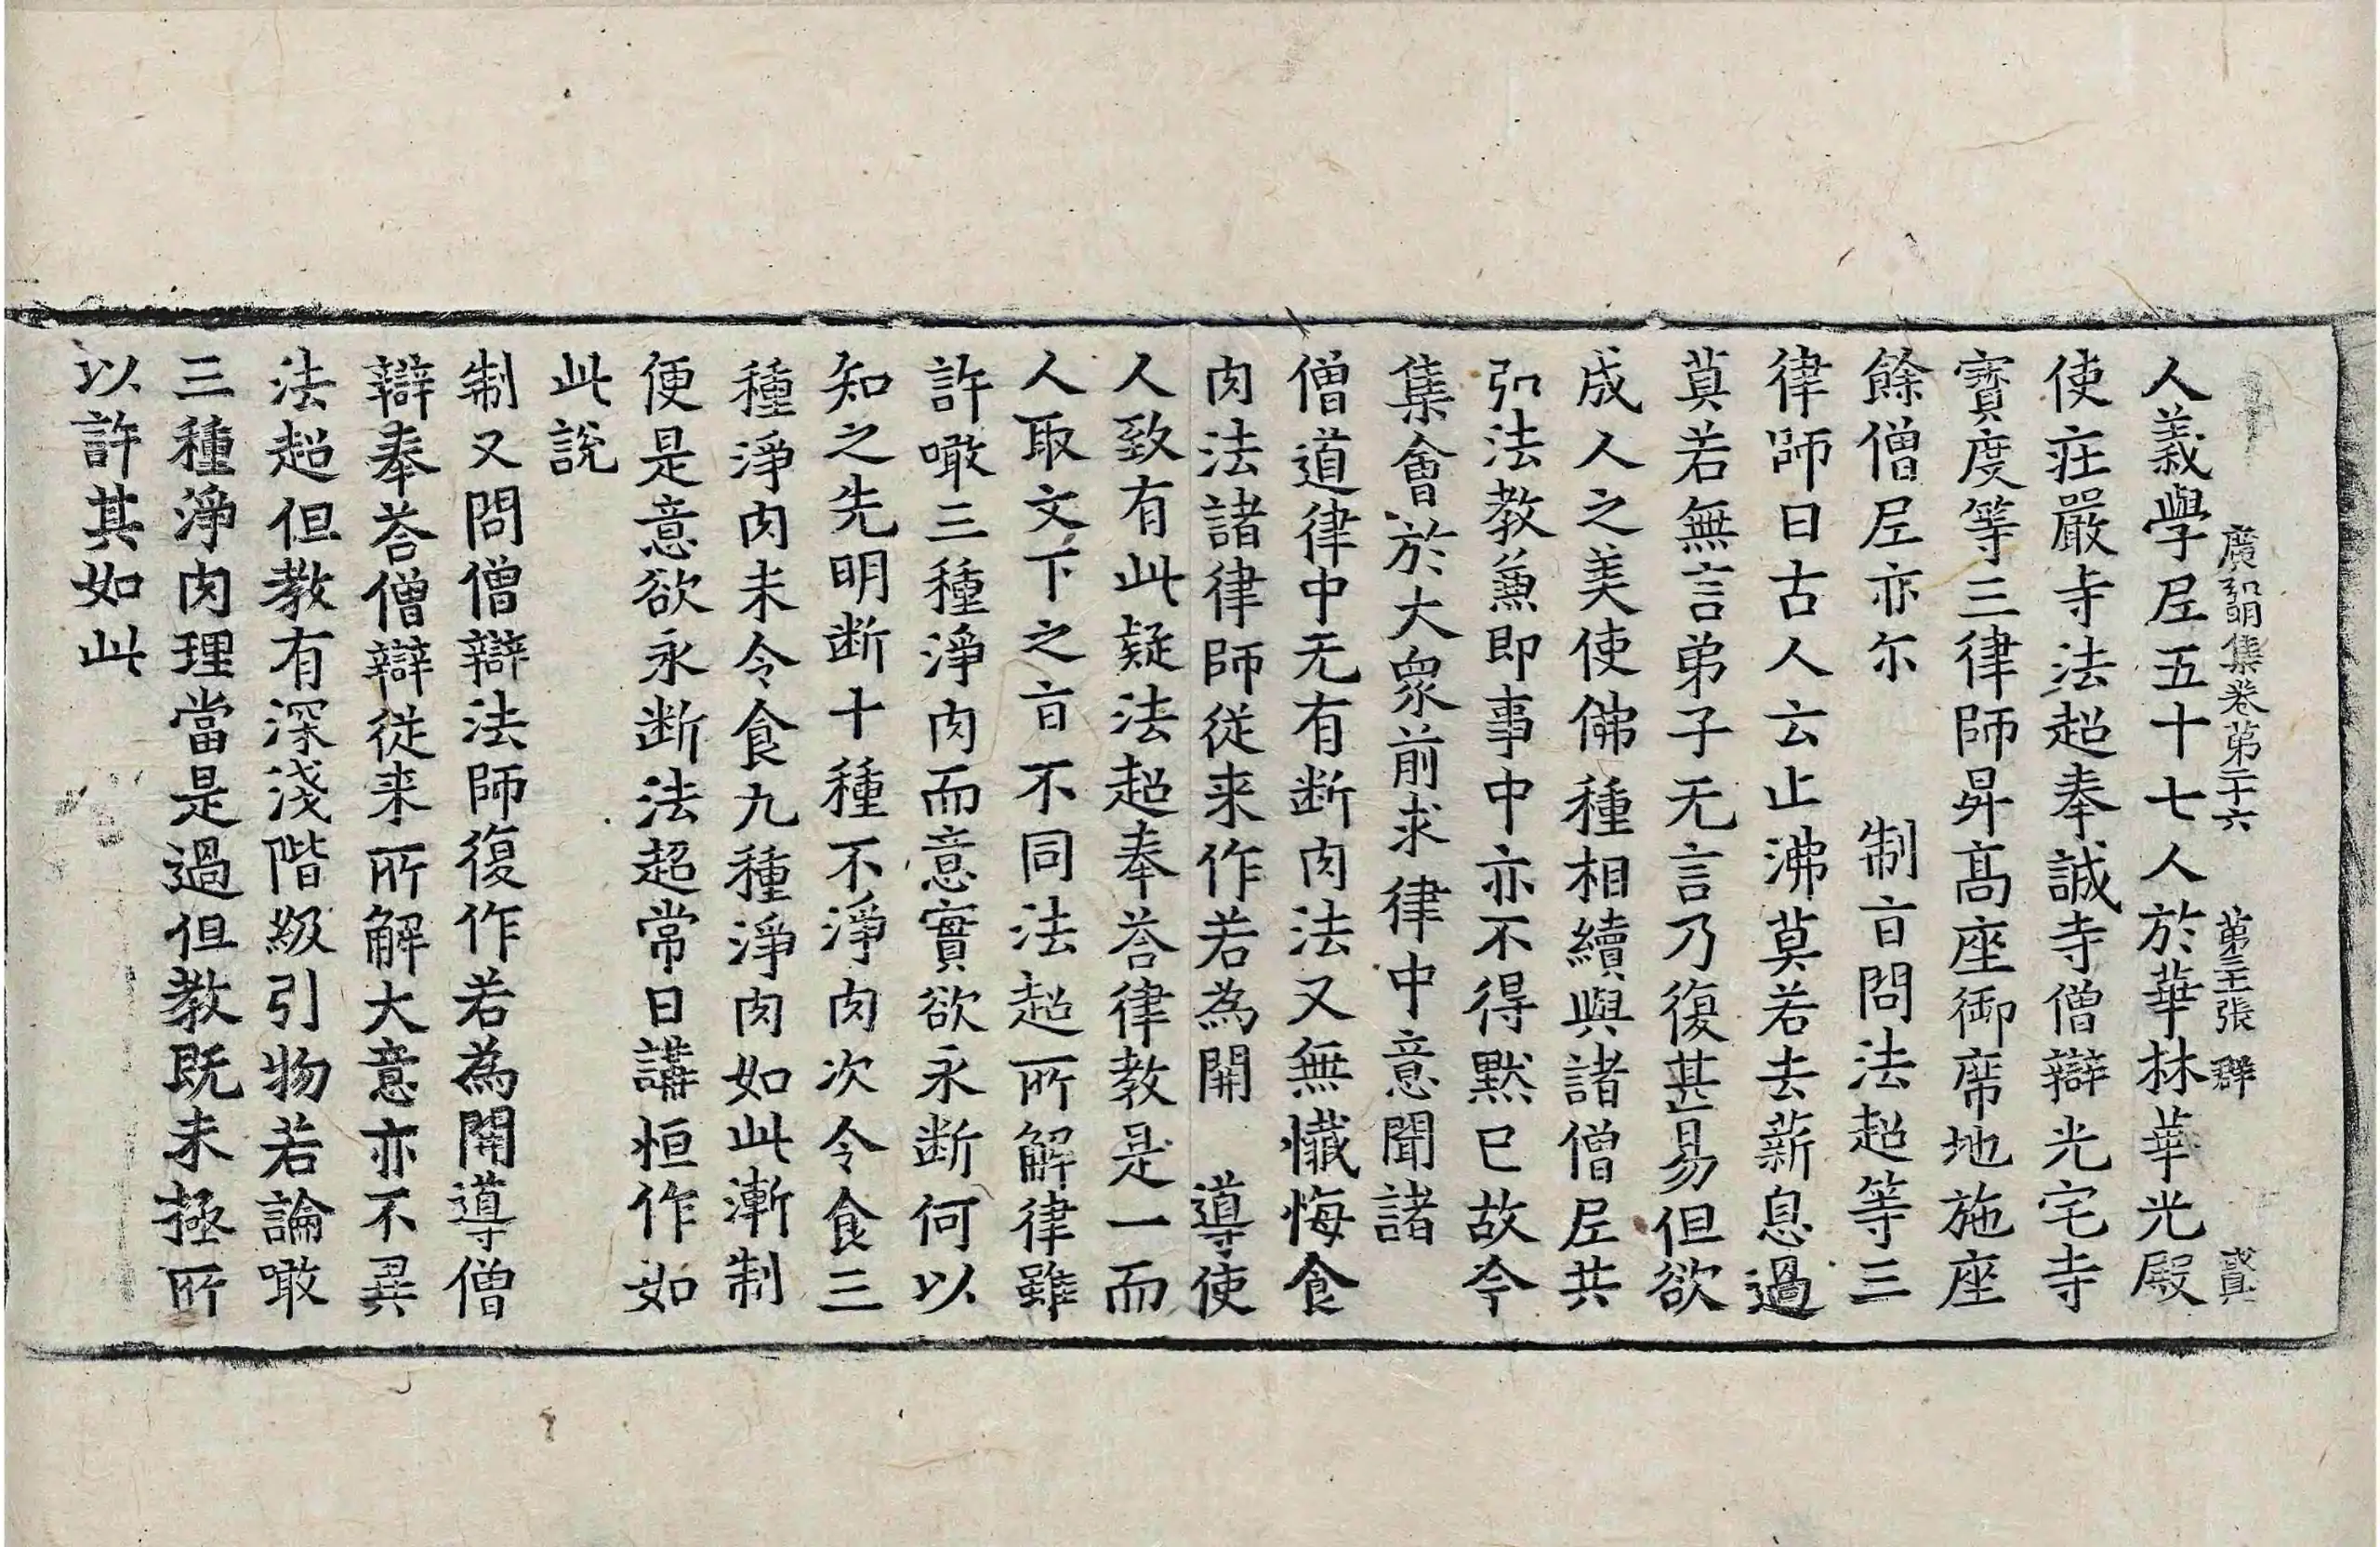 廣弘明集卷第二十六 第三十二張 群
人義學尼五十七人於華林華光殿
使莊嚴寺法超奉誠寺僧辯光宅寺
寶度等三律師昇高座御席地施座
餘僧尼亦尔 制㫖問法超等三
律師曰古人云止沸莫若去薪息過
莫若無言弟子无言乃復甚易但欲
成人之美使佛種相續與諸僧尼共
弘法教兼即事中亦不得默已故今
集會於大眾前求律中意聞諸
僧道律中无有断肉法又無懺悔食
肉法諸律師従来作若為開 導使
人致有此疑法超奉荅律教是一而
人取文下之㫖不同法超所解律雖
許噉三種淨肉而意實欲永断何以
知之先明断十種不淨肉次令食三
種淨肉未令食九種淨肉如此漸制
便是意欲永断法超常日講恒作如
此說
制又問僧辯法師復作若為開導僧
辯奉荅僧辯従来所解大意亦不異
法超但教有深淺階級引物若論噉
三種淨肉理當是過但教既未極所
以許其如此